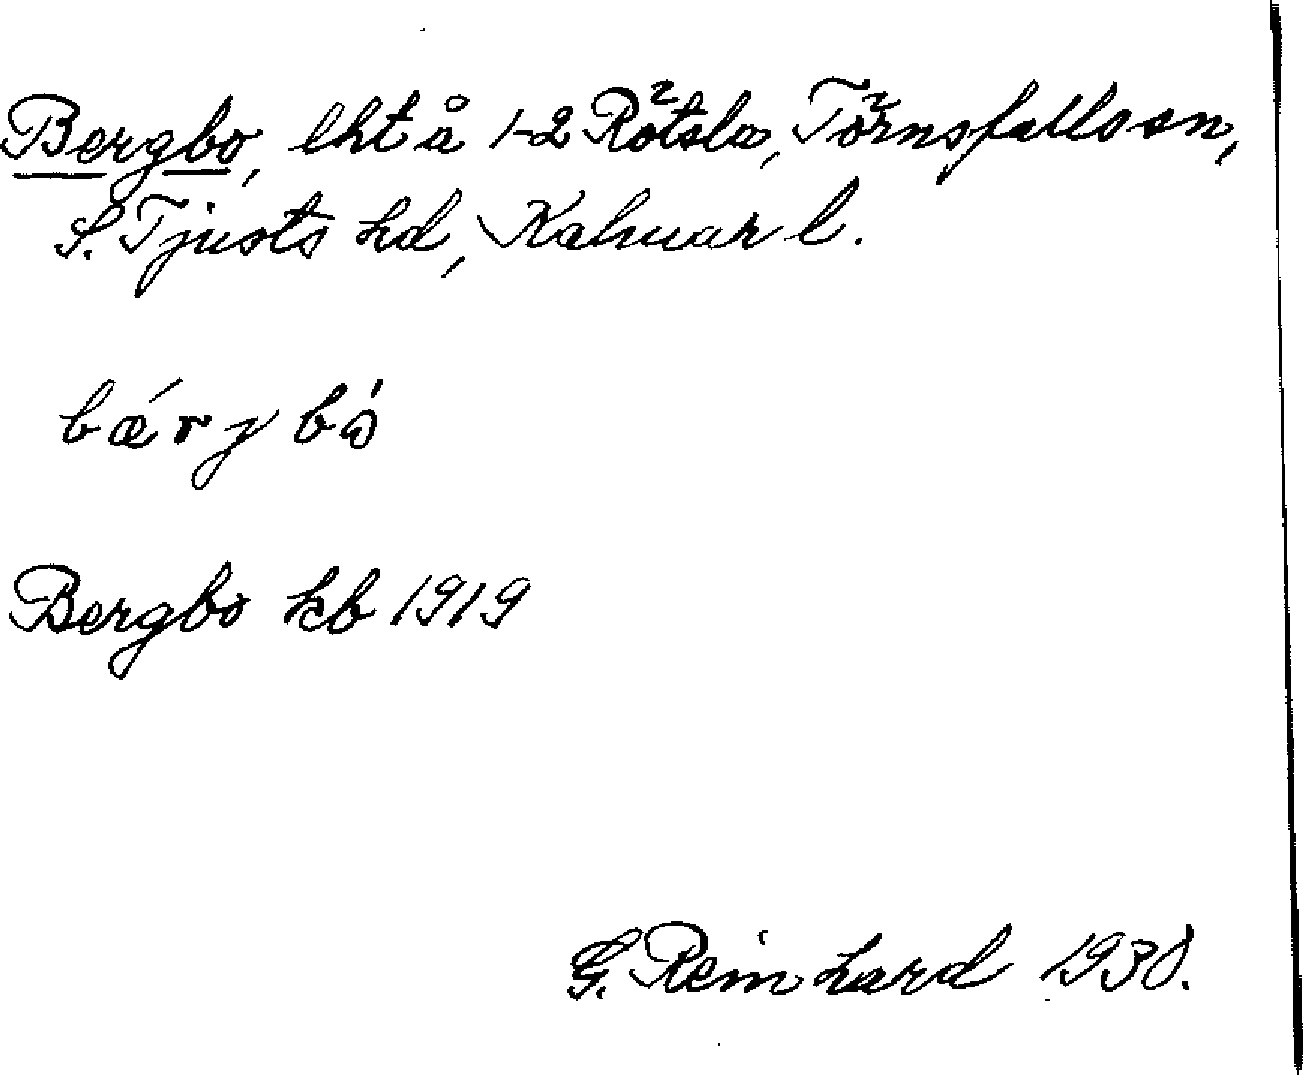 Bergbo, lht å 1-2 Rötsla, Törnsfalls sn,
S. Tjusts hd, Kalmar l.
bǽrj bó
Bergbo kb 1919
G. Reinhard 1930.